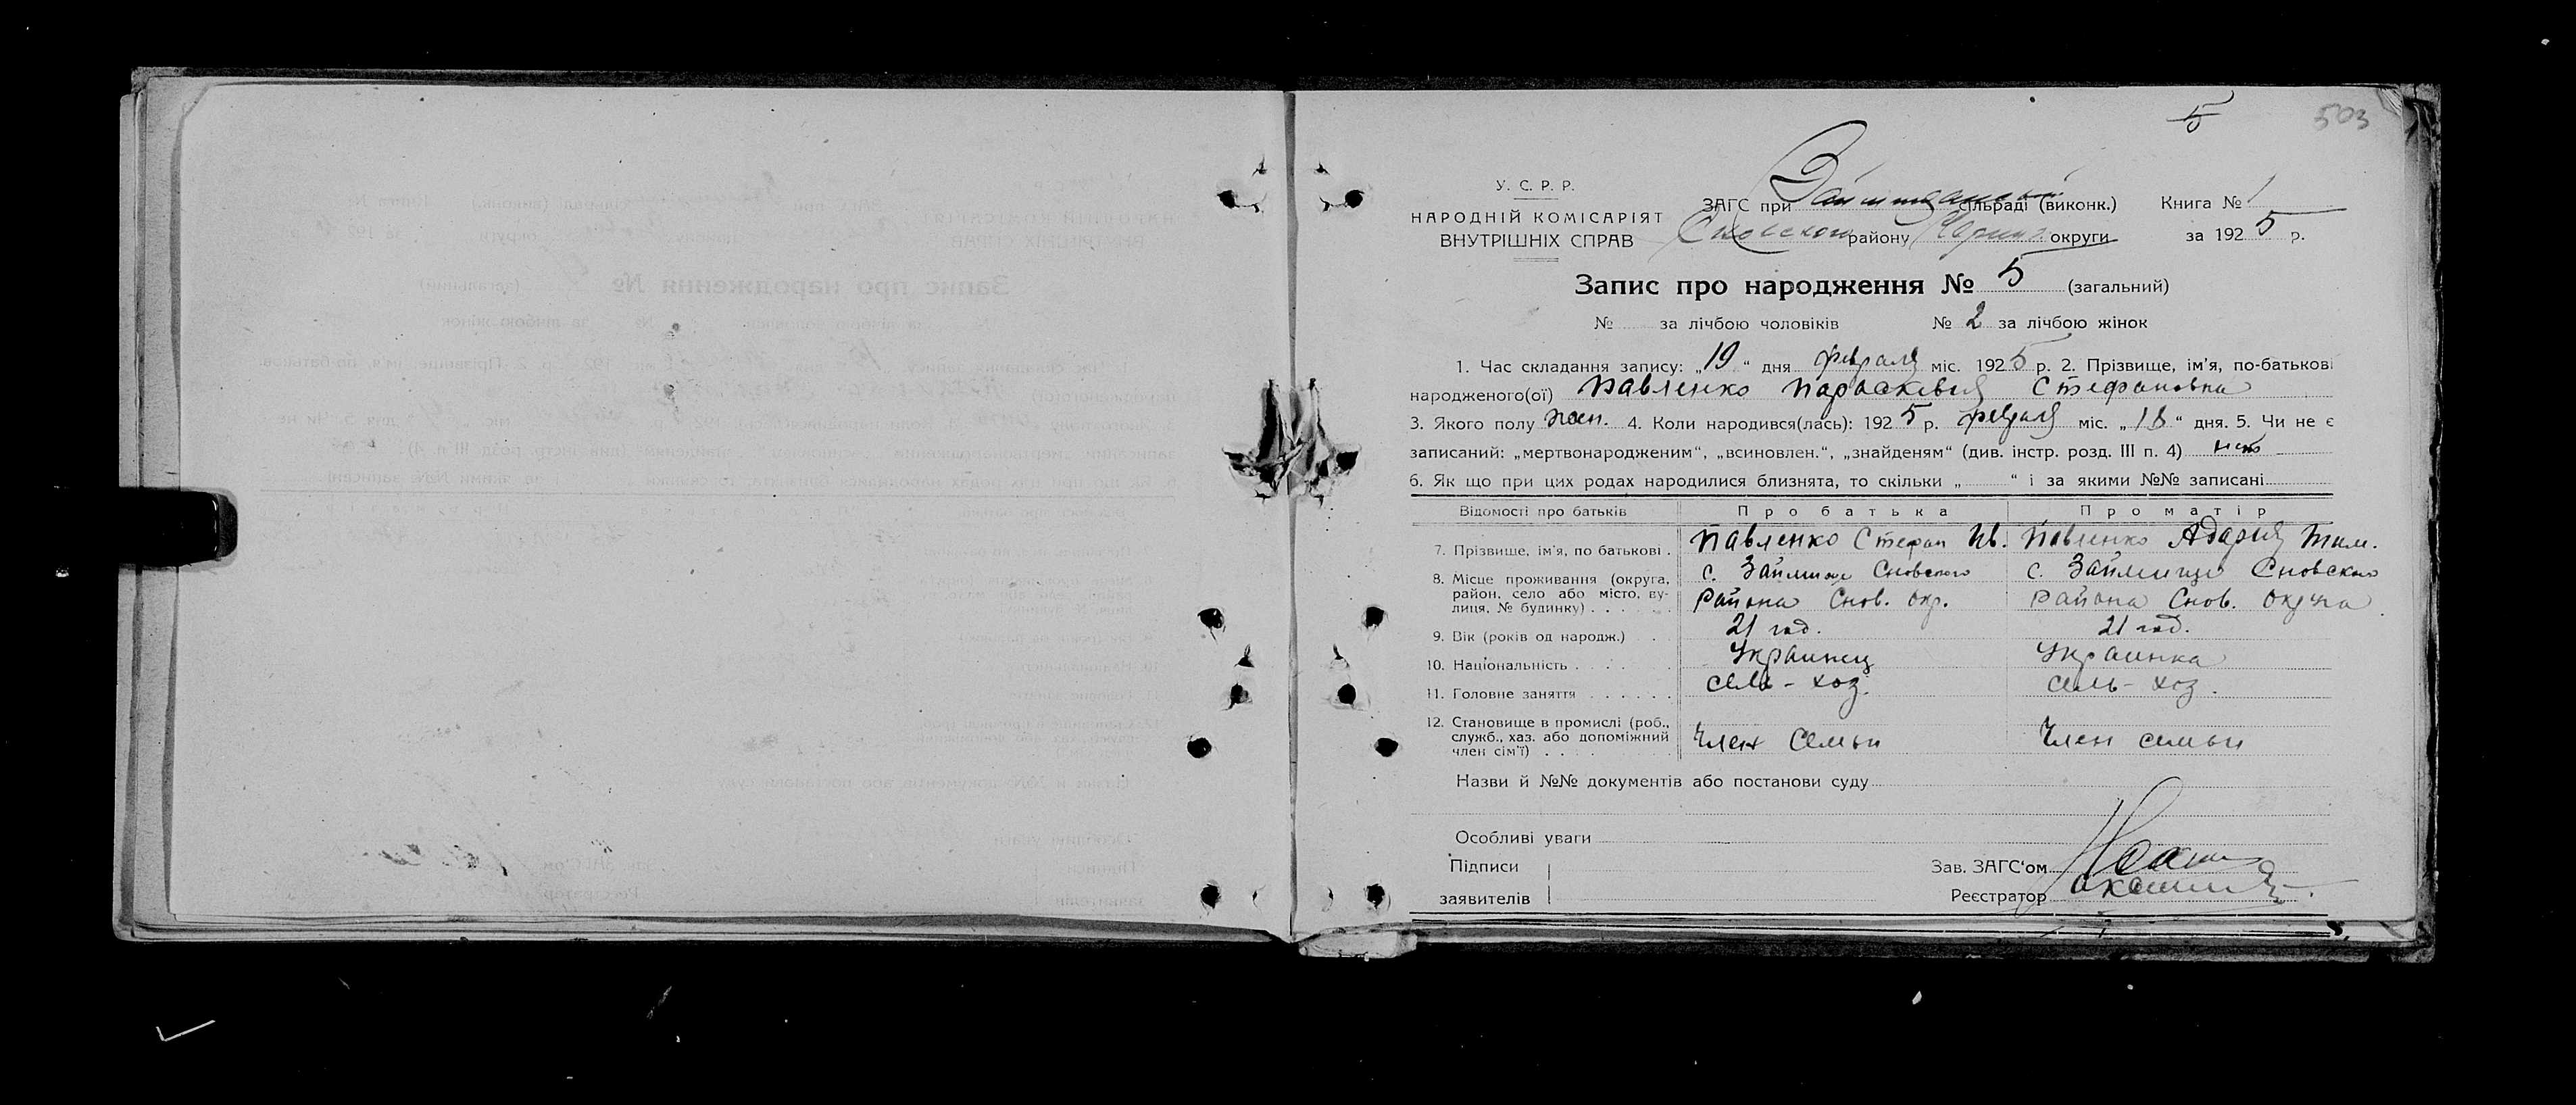 5
503
У. С. Р. Р.
НАРОДНІЙ КОМІСАРІЯТ
ВНУТРІШНІХ СПРАВ
ЗАГС при сільраді (виконк.) Книга № 1
Сновского району округи за 1925 р.
Запис про народження № 5 (загальний)
№ за лічбою чоловіків № 2 за лічбою жінок
1. Час складання запису: „19“ дня февраля міс. 1925 р. 2. Прізвище, ім'я, по-батькові
народженого(ої) Павленко Параскевия Стефановна
3. Якого полу жен. 4. Коли народився(лась): 1925 р. февраля міс. „18“ дня. 5. Чи не є
записаний: „мертвонародженим“, „всиновлен.“, „знайденям“ (див. інстр. розд. III п. 4) нет
6. Як що при цих родах народилися близнята, то скільки „ “ і за якими №№ записані
Відомості про батьків Про батька Про матір
7. Прізвище, ім'я, по батькові . Павленко Стефан Ив. Павленко Адария Тим.
8. Місце проживання (округа, район, село або місто, вулиця, № будинку) . . . с. Займище Сновского с. Займище Сновского
района Снов. окр. района Снов. округа
9. Вік (років од народж.) . 21 год. 21 год.
10. Національність . . . . Украинец Украинка
11. Головне заняття . . . . . . сель-хоз. сель-хоз.
12. Становище в промислі (роб., служб., хаз. або допоміжний член сім'ї) . . . . Член семьи Член семьи
Назви й №№ документів або постанови суду
Особливі уваги
Підписи
заявителів
Зав. ЗАГС'ом
Реєстратор